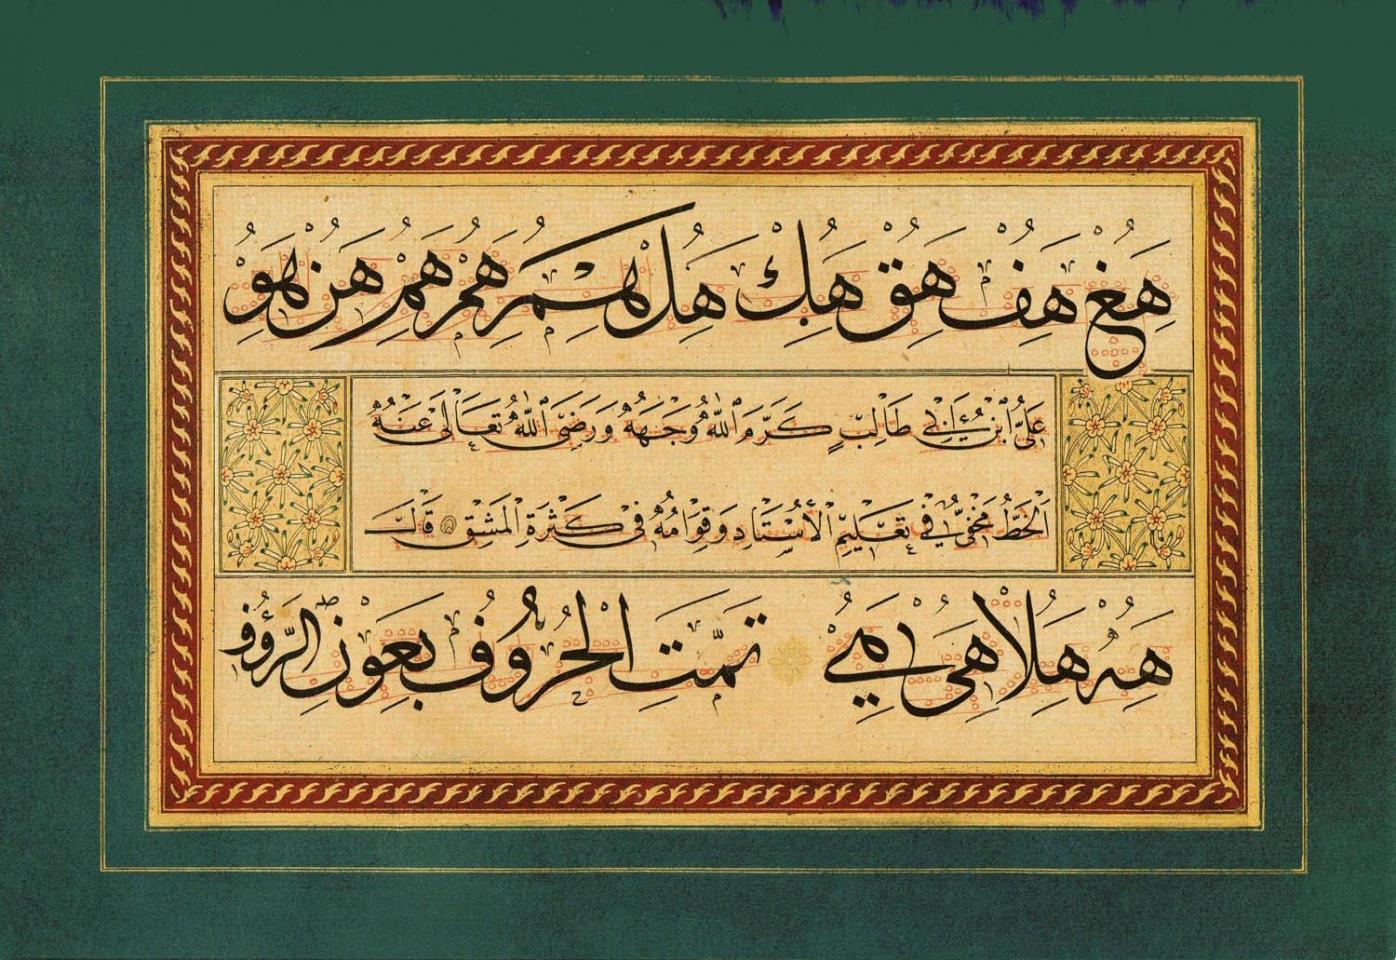 هغ هف هق هك هل لهم هم هم هن لهو
عَلىُّ ابْنُ اَبِى طَالِبٍ كَرَّمَ اللّٰهُ وَجْهَهُ وَرَضِىَ اللّٰهُ تَعَالٰى عَنْهُ
اَلْخَطُّ مَخْفِىٌّ فِى تَعْلِيمِ الْأُسْتَادِ وَقِوَامُهُ فِى كَثْرَةِ الْمَشْقِ قَالَ
هه هلا هى تمَّتِ الْحُرُوفُ بِعَوْنِ الرَّؤُفِ